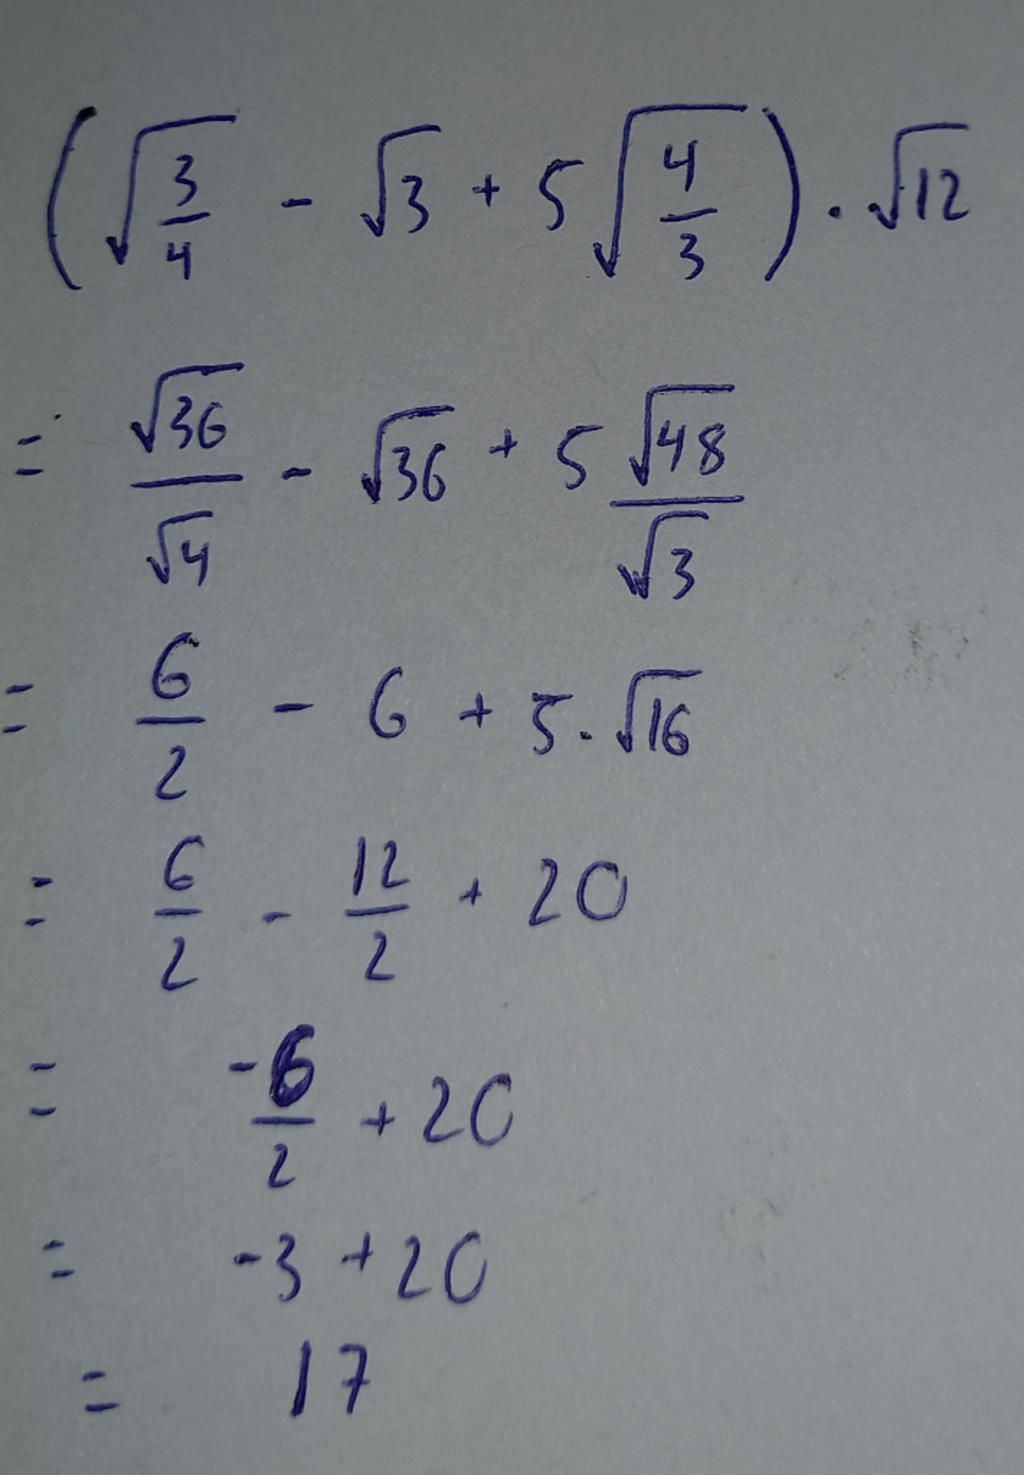 (√(3/4) - √3 + 5√(4/3)) · √12
= √36/√4 - √36 + 5 √48/√3
= 6/2 - 6 + 5·√16
= 6/2 - 12/2 + 20
= -6/2 + 20
= -3 + 20
= 17